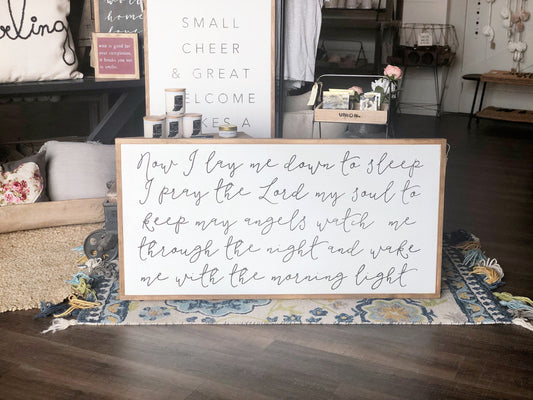 SMALL
CHEER
& GREAT
WELCOME
MAKES A
wine is good for
Now I lay me down to sleep
I pray the Lord my soul to
keep may angels watch me
through the night and wake
me with the morning light